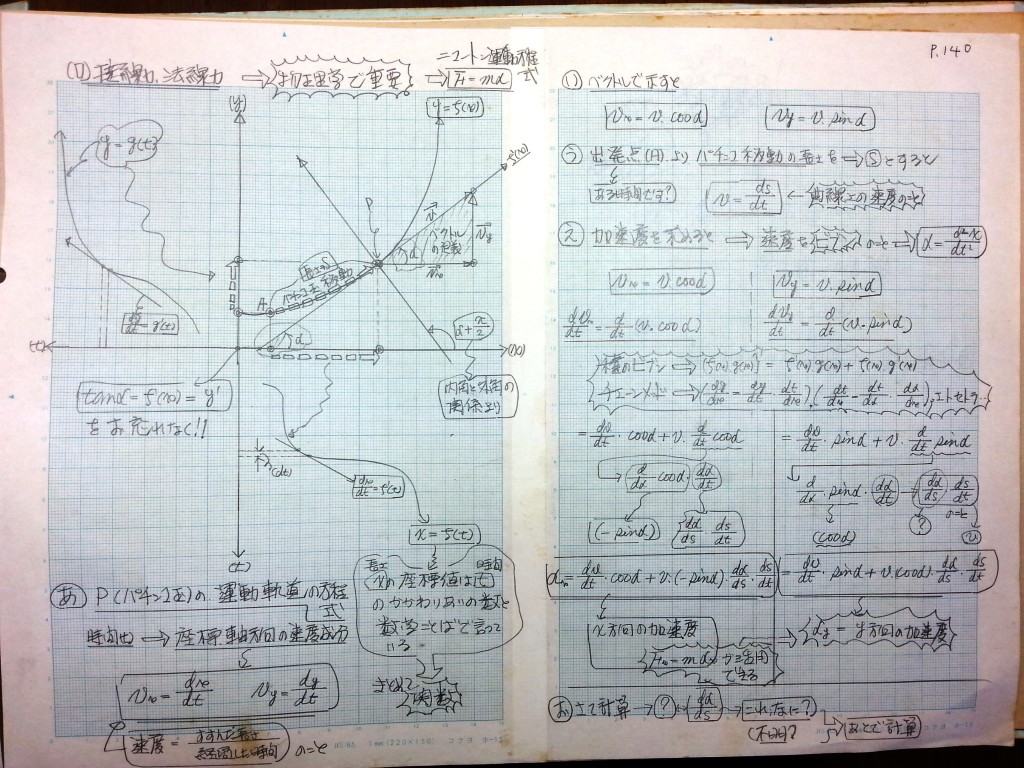 P.140
(ロ) 接線力、法線力 ⟹ 物理学で重要 ⟹ F=mα
ニュートン運動方程式
y=f(x)
y=g(t)
(y)
f'(x)
P
v
ベクトルの定義
v_y
v_x
α
長さS
パチンコ玉移動
A
dy/dt=g'(t)
α+π/2
(t)
(x)
tanα=f'(x)=y'
をお忘れなく!!
内角と外角の
関係より
(dt)
dx/dt=f'(t)
x=f(t)
(t)
長さ
時間
xの座標値は(t)
のかかわりあいの数と
数学ことばで言って
いる。
まとめて
関数
あ P(パチンコ玉)の運動軌道の方程式
座標軸方向の速度成分
v_x=dx/dt v_y=dy/dt
速度=すすんだ長さ/経過した時間 のこと
(1) ベクトルで示すと
v_x=v.cosα v_y=v.sinα
う 出発点(A)よりパチンコ移動の長さを⟹Ⓢとすると
ある時間です?
v=ds/dt ← 曲線上の速度のこと
え 加速度を求めると ⟹ 速度をビブン のこと ⟹ α=d²x/dt²
v_x=v.cosα v_y=v.sinα
dv/dt=d/dt(v.cosα) dv_y/dt=d/dt(v.sinα)
積のビブン⟹{f(x).g(x)}'=f'(x).g(x)+f(x).g'(x)
チェーンメソッド⟹(dy/dx=dy/dt.dt/dx),エトセトラ
=dv/dt.cosα+v.d/dt cosα =dv/dt.sinα+v.d/dt sinα
d/dα cosα dα/dt d/dα.sinα.dα/dt→dα/ds ds/dt
のこと
(-sinα) dα/ds ds/dt (cosα) (?) (v)
α_x=dv/dt.cosα+v.(-sinα).dα/ds.ds/dt =dv/dt.sinα+v.(cosα).dα/ds.ds/dt
x方向の加速度 α_y=y方向の加速度
F_x=mα_x が活用できる
お さて計算→(?)は dα/ds→これなに?
(不明?) あとで計算
1mm(220×150) コクヨ ホ-15